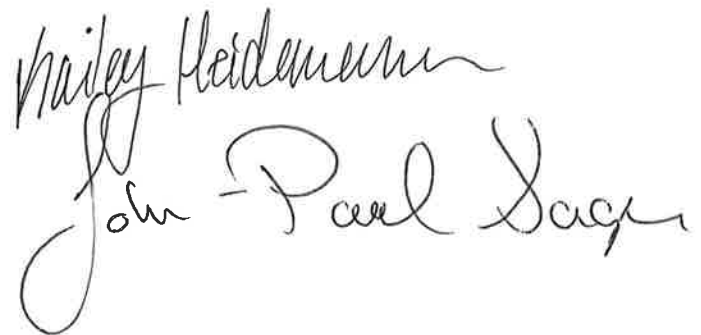 Kailey Heidemann
John-Paul Sager